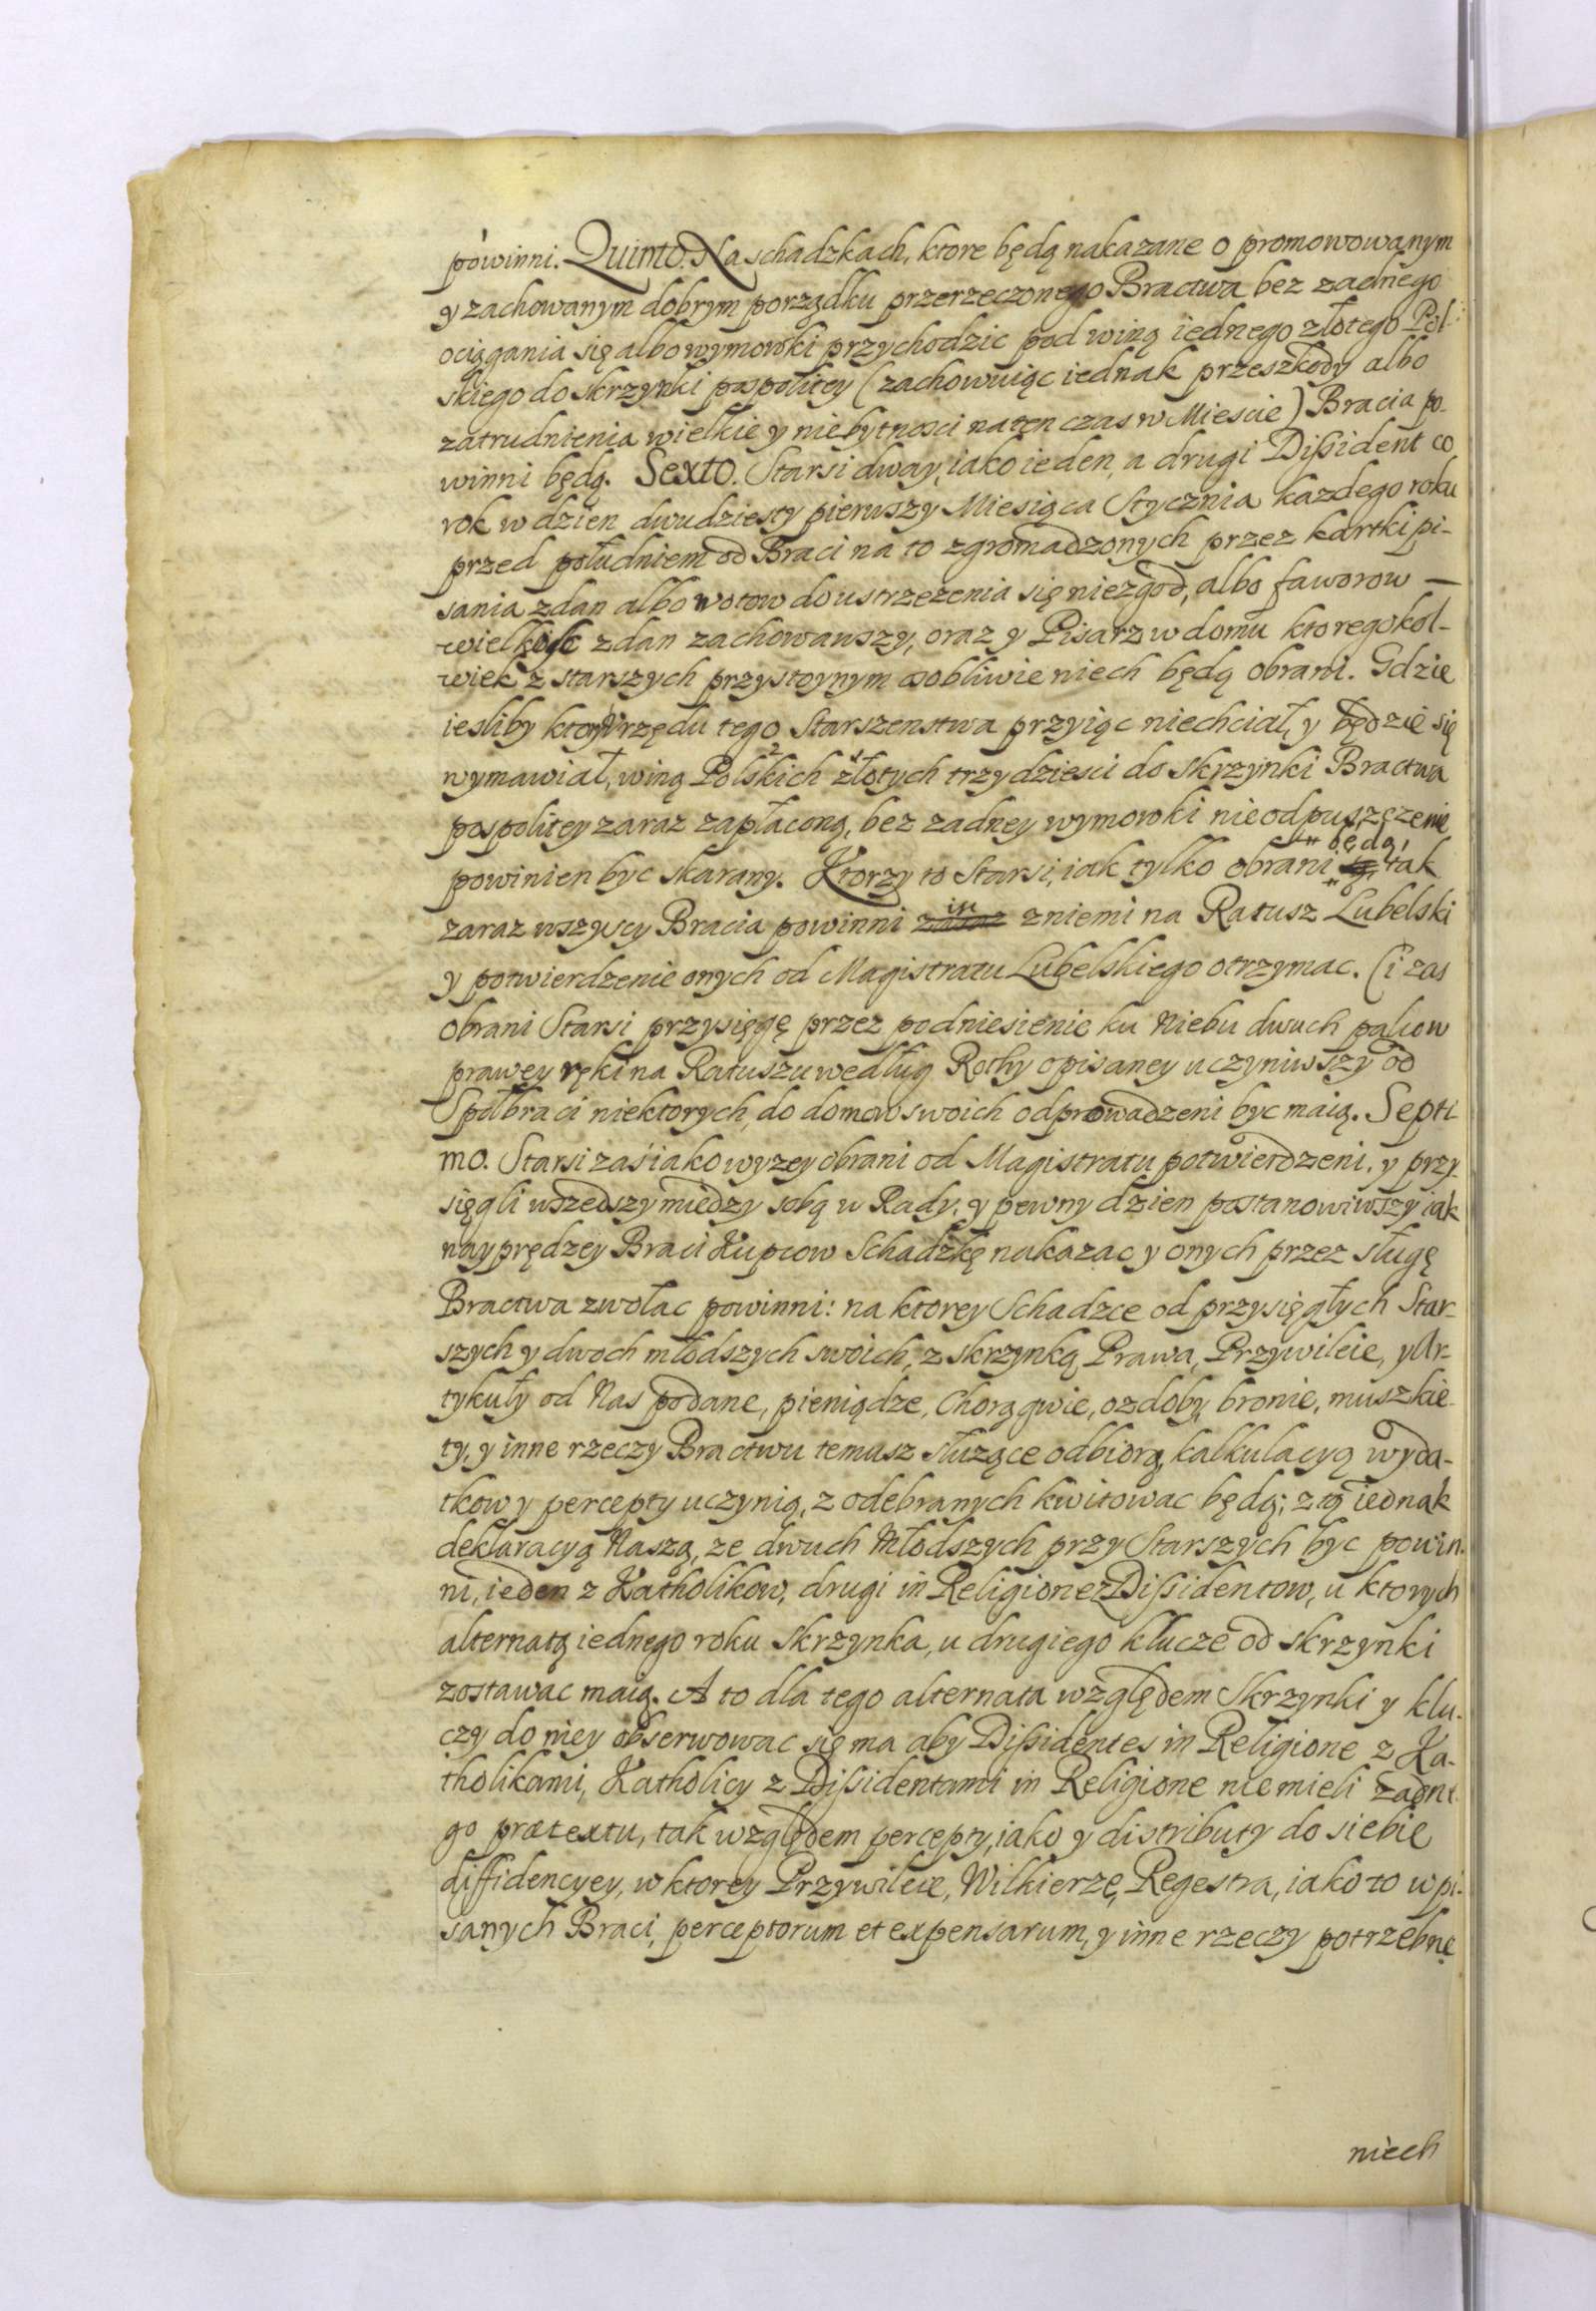 powinni. Quinto. Na schadzkach, ktore będą nakazane o promowowanym
y zachowanym dobrym porządku przerzeczonego Bractwa bez zadnego
ociągania się albo wymowki przychodzic pod winą iednego złotego Pol-
skiego do skrzynki pospolitey (zachowuiąc iednak przeszkody albo
zatrudnienia wielkie y niebytnosci na ten czas w Miescie) Bracia po-
winni będą. Sexto. Starsi dway, iako ieden, a drugi Dissident co
rok w dzien dwudziesty pierwszy Miesiąca Stycznia kazdego roku
przed południem od Braci na to zgromadzonych przez kartki pi-
sania zdan albo wotow do ustrzezenia się niezgod, albo faworow —
wielkosc zdan zachowawszy, oraz y Pisarz w domu ktoregokol-
wiek z starszych przystoynym osobliwie niech będą obrani. Gdzie
iesliby ktory Urzędu tego Starszenstwa przyiąc niechciał, y będzie się
wymawiał, winą Polskich 2 złotych 1 trzydziesci do Skrzynki Bractwa
pospolitey zaraz zapłaconą, bez zadney wymowki nieodpuszczenie
powinien byc skarany. Ktorzy to Starsi, iak tylko obrani będą, tak
zaraz wszyscy Bracia powinni zaraz isc zniemi na Ratusz Lubelski
y potwierdzenie onych od Magistratu Lubelskiego otrzymac. Ci zas
obrani Starsi przysięgę przez podniesienie ku Niebu dwuch palcow
prawey ręki na Ratuszu według Rothy opisaney uczyniwszy od
Spolbraci niektorych, do domow swoich odprowadzeni byc maią. Septi-
mo. Starsi zas iako wyzey obrani od Magistratu potwierdzeni, y przy-
sięgli wszedszy miedzy sobą w Rady, y pewny dzien postanowiwszy iak
nayprędzey Braci Kupcow Schadzkę nakazac y onych przez sługę
Bractwa zwołac powinni: na ktorey Schadzce od przysięgłych Star-
szych y dwoch młodszych swoich, z skrzynką Prawa, Przywileie, y Ar-
tykuły od Nas podane, pieniądze, Chorągwie, ozdoby, bronie, muszkie-
ty, y inne rzeczy Bractwu temusz słuzące odbiorą, kalkulacyą wyda-
tkow y percepty uczynią, z odebranych kwitowac będą; z tą iednak
deklaracyą Naszą, ze dwuch Młodszych przy Starszych byc powin-
ni, ieden z Katholikow, drugi in Religione z Dissidentow, u ktorych
alternatą iednego roku Skrzynka, u drugiego klucze od skrzynki
zostawac maią. A to dla tego alternata względem Skrzynki y klu-
czy do niey obserwowac się ma aby Dissidentes in Religione z Ka-
tholikami, Katholicy z Dissidentami in Religione nie mieli zadne-
go prætextu, tak względem percepty, iako y distributy do siebie
diffidencyey, w ktorey Przywileie, Wilkierze, Regestra, iako to wpi-
sanych Braci, perceptorum et expensarum, y inne rzeczy potrzebne
niech